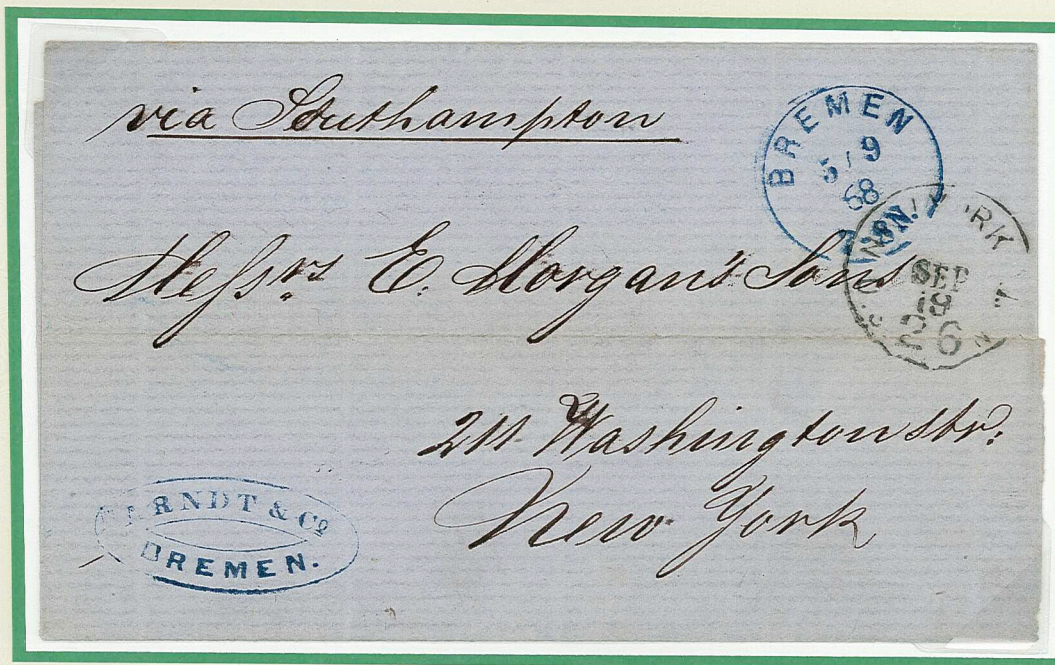 via Southampton
BREMEN
5 / 9
68
N.
SEP
18
26
Messrs E. Morgan's Sons
211 Washington str:
New York
ARNDT & Co
BREMEN.